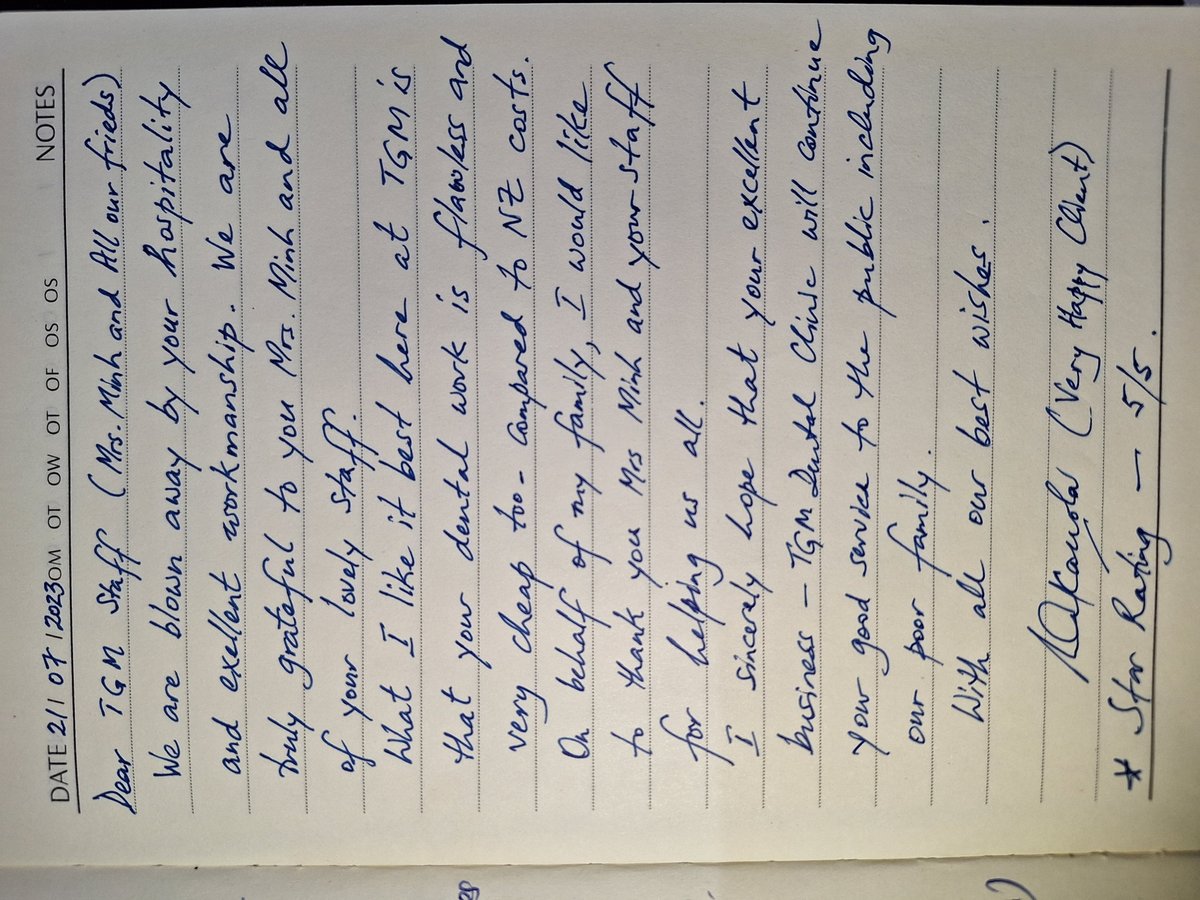 DATE 21/07/2023 OM OT OW OT OF OS OS NOTES
Dear TGM Staff (Mrs. Minh and All our frieds)
We are blown away by your hospitality
and exellent workmanship. We are
truly grateful to you Mrs. Minh and all
of your lovely staff.
What I like it best here at TGM is
that your dental work is flawless and
very cheap too - compared to NZ costs.
On behalf of my family, I would like
to thank you Mrs Minh and your staff
for helping us all.
I sincerely hope that your excellent
business - TGM Dental Clinic will continue
your good service to the public including
our poor family.
With all our best wishes.
(Very Happy Client)
* Star Rating — 5/5.